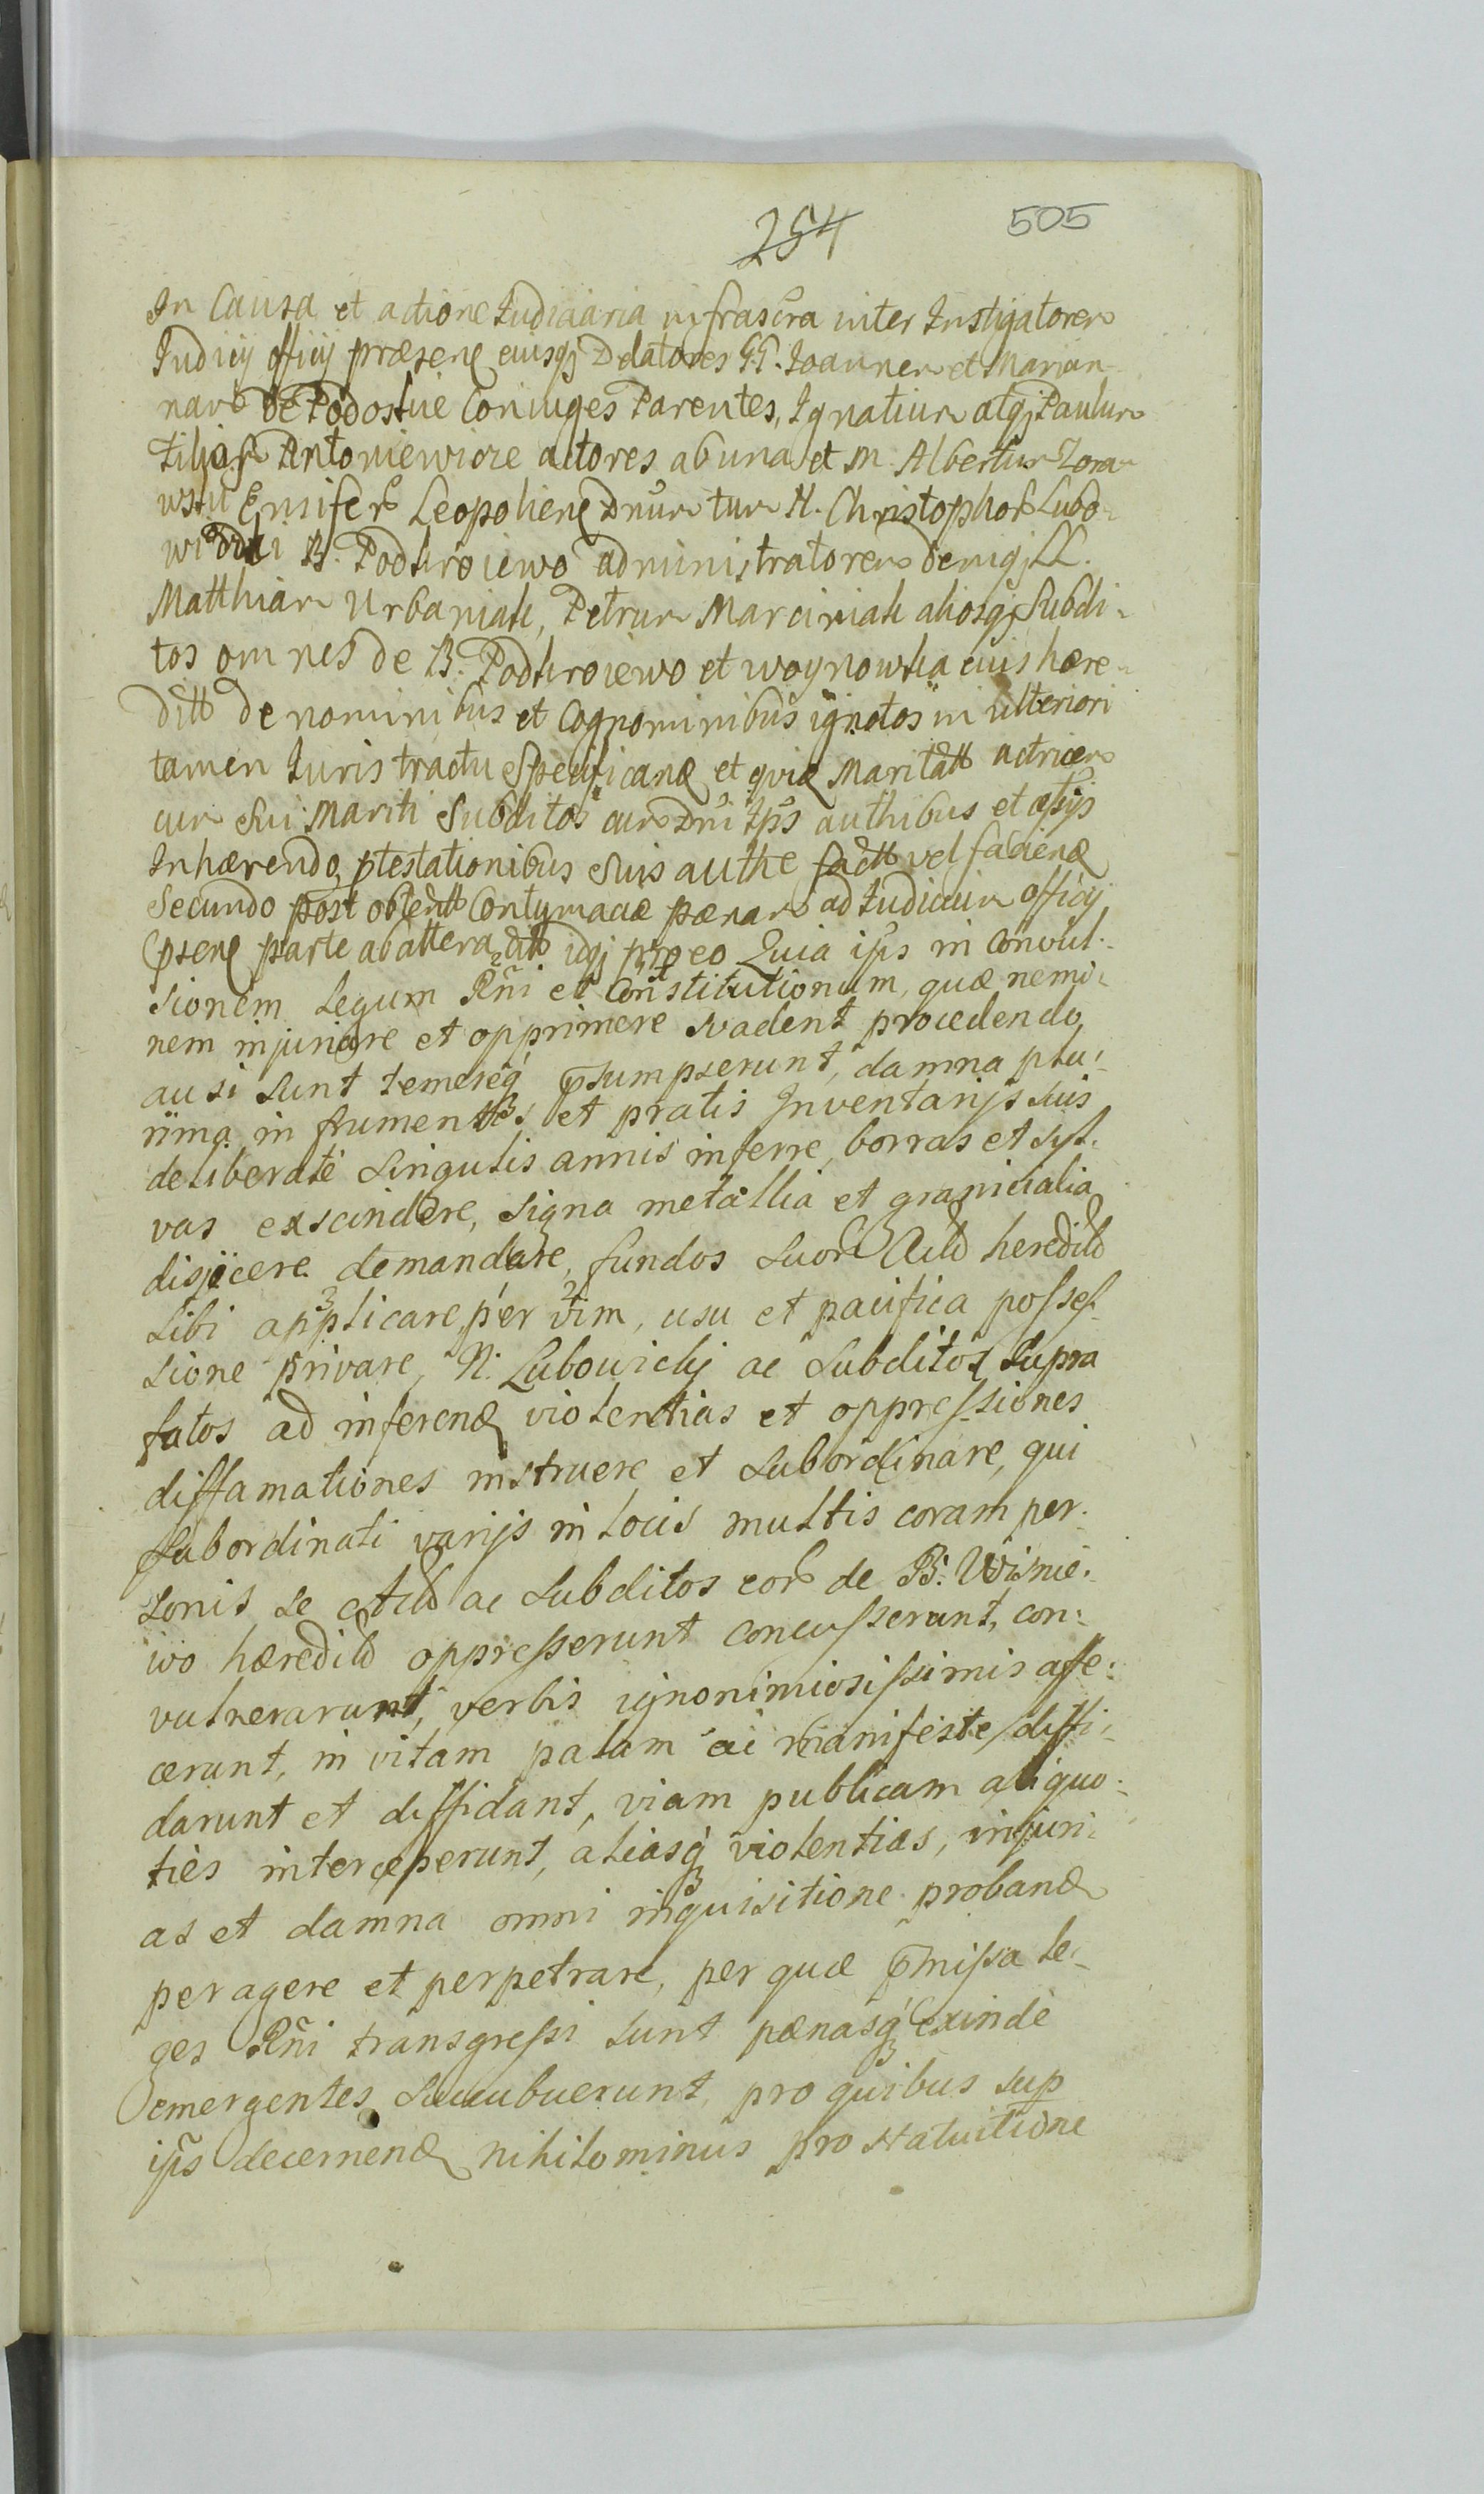 254 505
In Causa et actione Judiciaria infrascra inter Instigatorem
Judicij officij præsene eiusqz Delatores GG. Joannem et Marian
nam de Podoskie Coniuges Parentes, Ignatium atqz Paulum
Filios Antoniewicze actores ab una et M. Albertum Zora
wski Ensifer Leopoliene Dnum tum N. Christophor Lubo
widzki B. Podkroiewo administratorem deniqz LL.
Matthiam Urbaniak, Petrum Marciniak aliosqz Subdi
tos omnes de B. Podkroiewo et woynowka eius hære
ditt de nominibus et Cognominibus ignotos in ulteriori
tamen Juris tractu specificand et qvid Maritatt actricem
cum sui Mariti Subditos cum Dni Ips authibus et assijs
Inhærendo ptestationibus suis authe factt vel faciend
Secundo post obtentt Contumaciæ pænam ad Judicium officij
psene parte ab altera citt idqz pro eo Quia ips in convul.
sionem Legum Rñi et Constitutionum, quæ nemi
nem injuriare et opprimere svadent procedendo,
ausi sunt temereq p̃sumpserunt, damna plu
rima in frumentis et pratis Inventarijs suis
deliberatè singulis annis inferre, borras et syl.
vas exscindere, signa metallia et granicialia
disijcere demandare, fundos suor Acto heredit
sibi applicare, per vim, usu et pacifica posses
sione privare, N. Lubowidzkj ac Subditos supra
fatos ad inferend violentias et oppressiones
diffamationes instruere et subordinare, qui
subordinati varijs in locis multis coram per.
sonis se ac Subditos eor de B: Wisnie.
iwo hæredit oppresserunt concusserunt, con:
vulnerarunt, verbis ignonimiosissimis affe:
cerunt, in vitam palam ac manifeste diffi
darunt et diffidant, viam publicam aliquo:
tiès interceperunt, aliasq violentias, injuri
as et damna omni inquisitione proband
peragere et perpetrare, per quæ p̃missa le
ges Rñi transgressi sunt pænasq exindè
emergentes succubuerunt, pro quibus sup
ip̃s decernend nihilominus pro statuitione